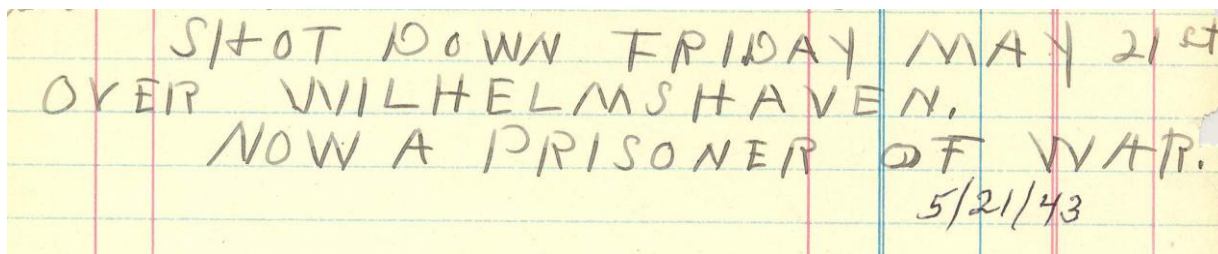 SHOT DOWN FRIDAY MAY 21st
OVER WILHELMSHAVEN.
NOW A PRISONER OF WAR.
5/21/43